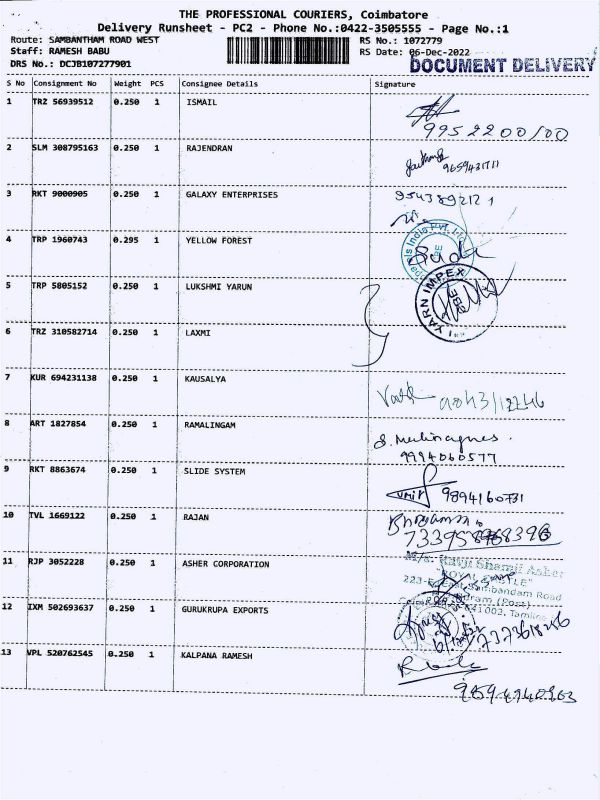 THE PROFESSIONAL COURIERS, Coimbatore
Delivery Runsheet - PC2 - Phone No.:0422-3505555 - Page No.:1
Route: SAMBANTHAM ROAD WEST
Staff: RAMESH BABU
DRS No.: DCJB107277901
RS No.: 1072779
RS Date: 06-Dec-2022
DOCUMENT DELIVERY
S No Consignment No Weight PCS Consignee Details Signature
1 TRZ 56939512 0.250 1 ISMAIL
9952200100
2 SLM 308795163 0.250 1 RAJENDRAN
9659431711
3 RKT 9000905 0.250 1 GALAXY ENTERPRISES
4 TRP 1960743 0.295 1 YELLOW FOREST
5 TRP 5805152 0.250 1 LUKSHMI YARUN
YARN IMPEX
6 TRZ 310582714 0.250 1 LAXMI
7 KUR 694231138 0.250 1 KAUSALYA
8 ART 1827854 0.250 1 RAMALINGAM
9994060577
9 RKT 8863674 0.250 1 SLIDE SYSTEM
9894160731
10 TVL 1669122 0.250 1 RAJAN
11 RJP 3052228 0.250 1 ASHER CORPORATION
M/s. Ravji Shamji Asher
12 IXM 502693637 0.250 1 GURUKRUPA EXPORTS
7373618286
13 VPL 520762545 0.250 1 KALPANA RAMESH